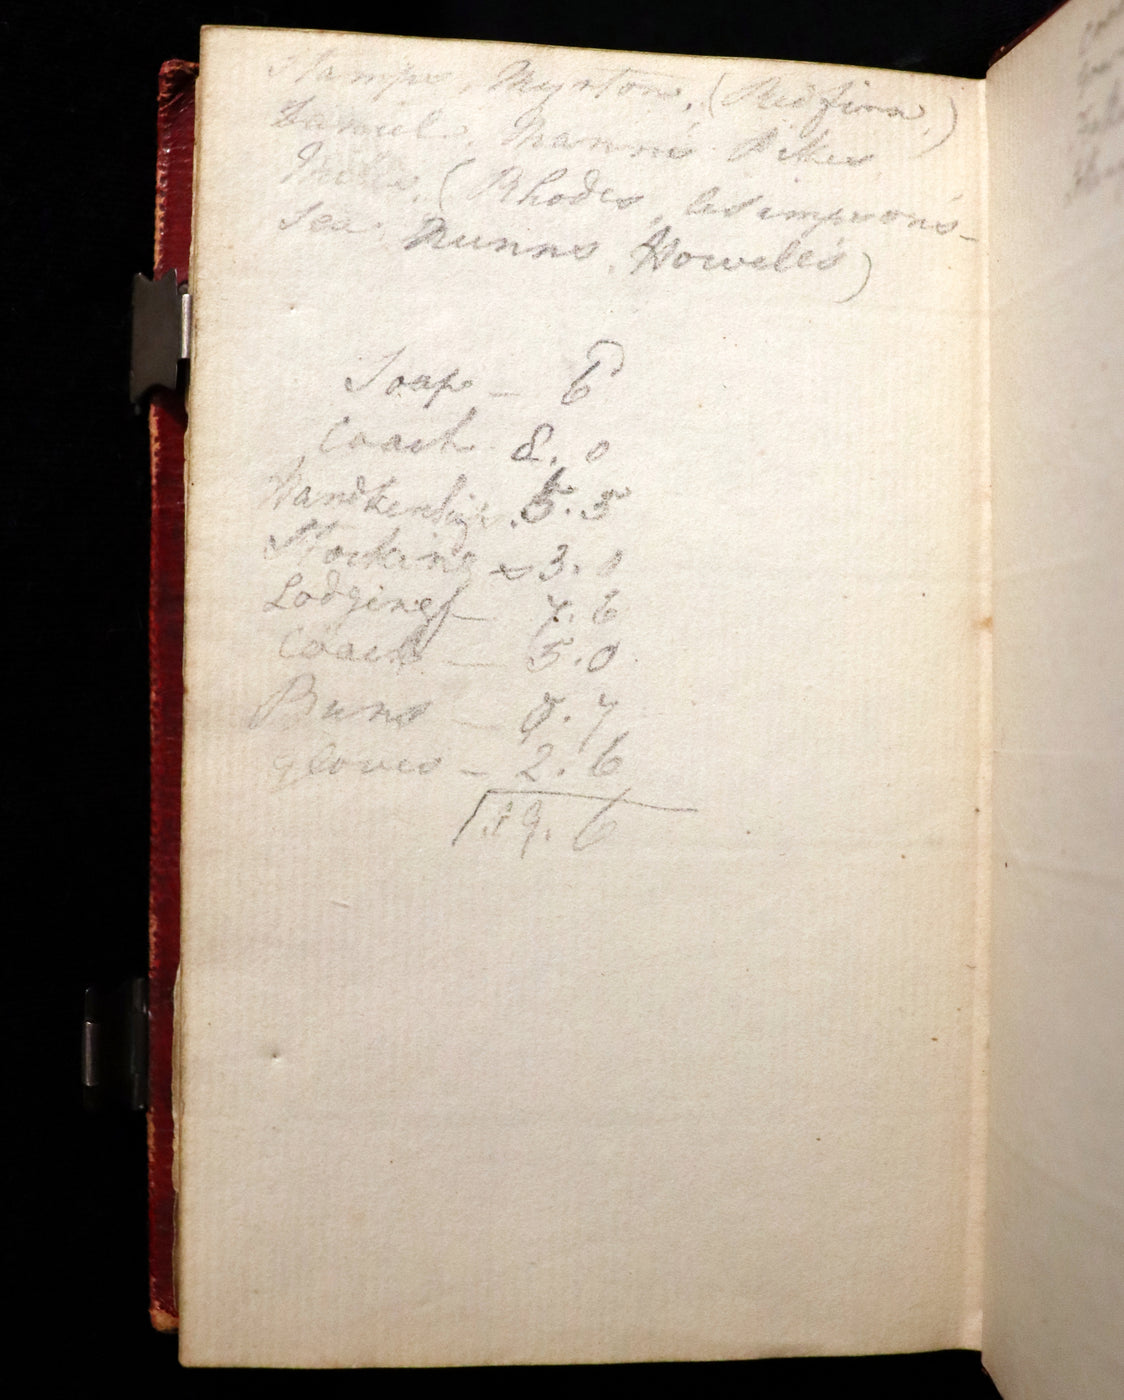 Stamps, Myrton, (Redfirn,)
Daniel, Mannis Pikes
Mills, (Rhodes,
Sea. Nunns, Howells)
Soap — 6
Coach 8. 0
Handkerchiefs. 5. 5
Stockings 3. 0
Lodging — 7. 6
Coach — 5. 0
Buns — 0. 7
Gloves — 2. 6
19. 6